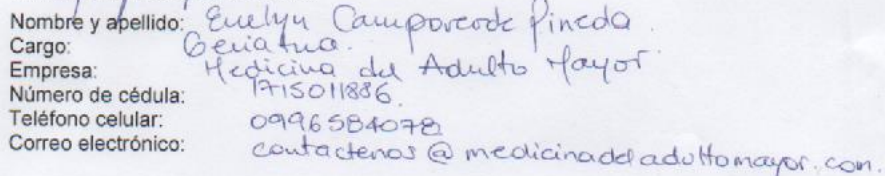 Nombre y apellido: Evelyn Campoverde Pineda.
Cargo: Geriatra.
Empresa: Medicina del Adulto Mayor.
Número de cédula: 1715011886.
Teléfono celular: 0996584078
Correo electrónico: contactenos @ medicinadeladultomayor.com.